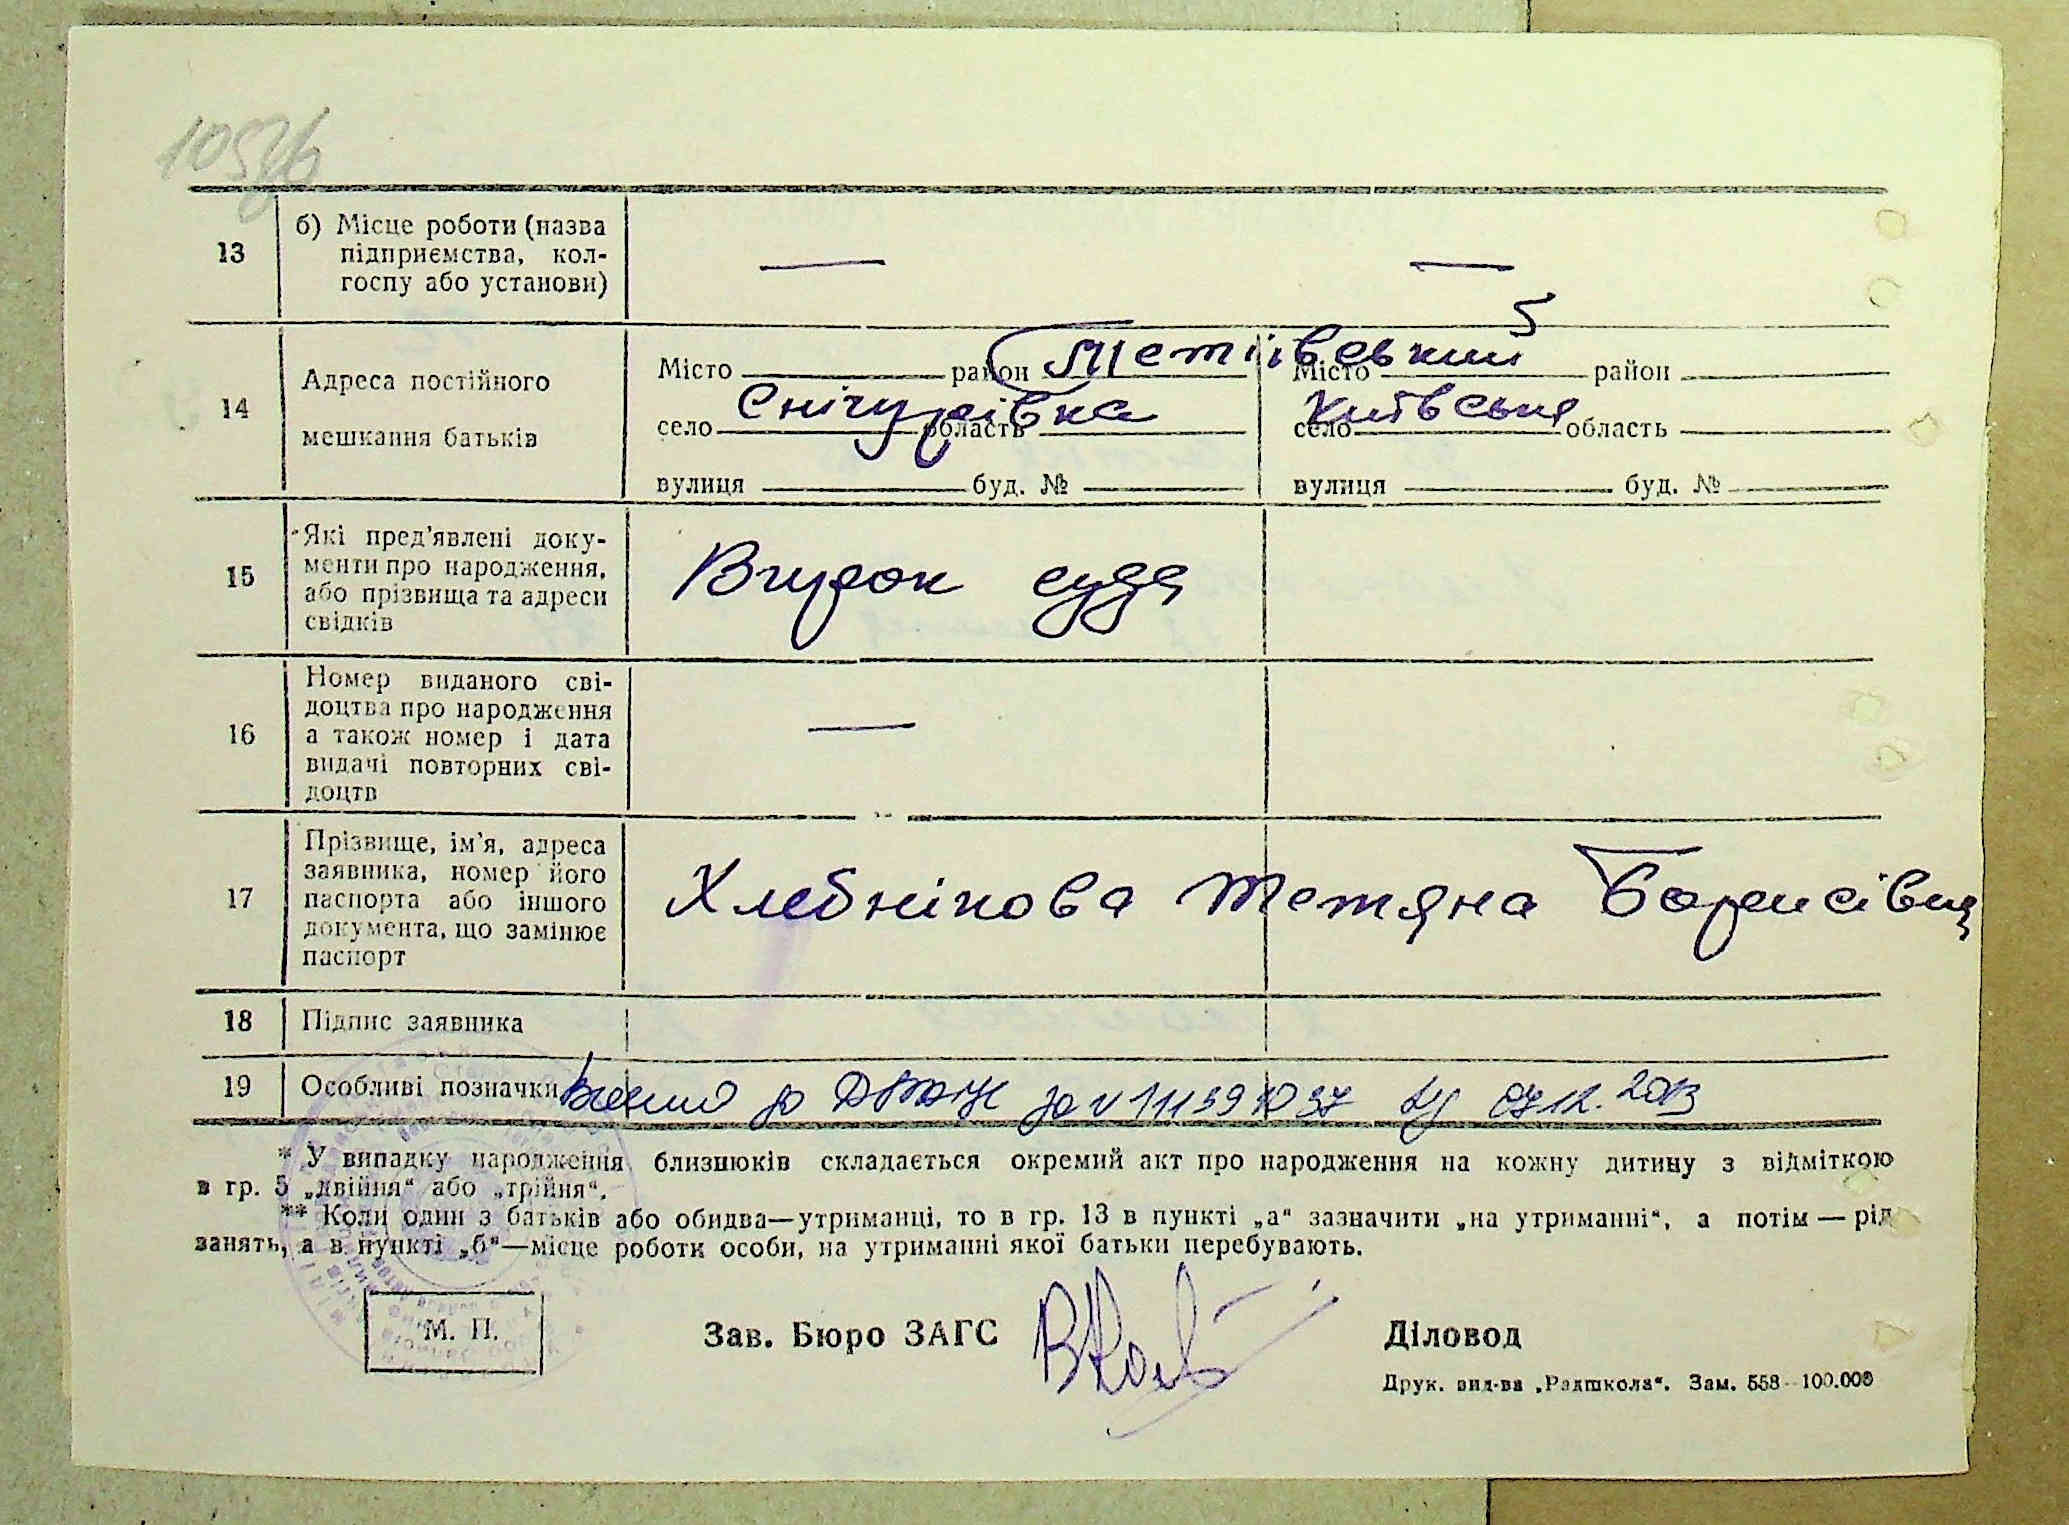 105зв
13
б) Місце роботи (назва
підприємства, кол-
госпу або установи)
—
—
14
Адреса постійного
мешкання батьків
Місто район Тетіївський Місто район
село Снігурівка область село Київська область
вулиця буд. № вулиця буд. №
15
Які пред'явлені доку-
менти про народження,
або прізвища та адреси
свідків
Вирок суда
16
Номер виданого сві-
доцтва про народження
а також номер і дата
видачі повторних сві-
доцтв
—
17
Прізвище, ім'я, адреса
заявника, номер його
паспорта або іншого
документа, що замінює
паспорт
Хлебнікова Тетяна Борисівна
18
Підпис заявника
19
Особливі позначки
Внесено до ДРАЦС за № 07.12.2013
* У випадку народження близнюків складається окремий акт про народження на кожну дитину з відміткою
в гр. 5 „двійня“ або „трійня“.
** Коли один з батьків або обидва—утриманці, то в гр. 13 в пункті „а“ зазначити „на утриманні“, а потім — рід
занять, а в пункті „б“—місце роботи особи, на утриманні якої батьки перебувають.
М. П.
Зав. Бюро ЗАГС
Діловод
Друк. вид-ва „Радшкола“. Зам. 558—100.000